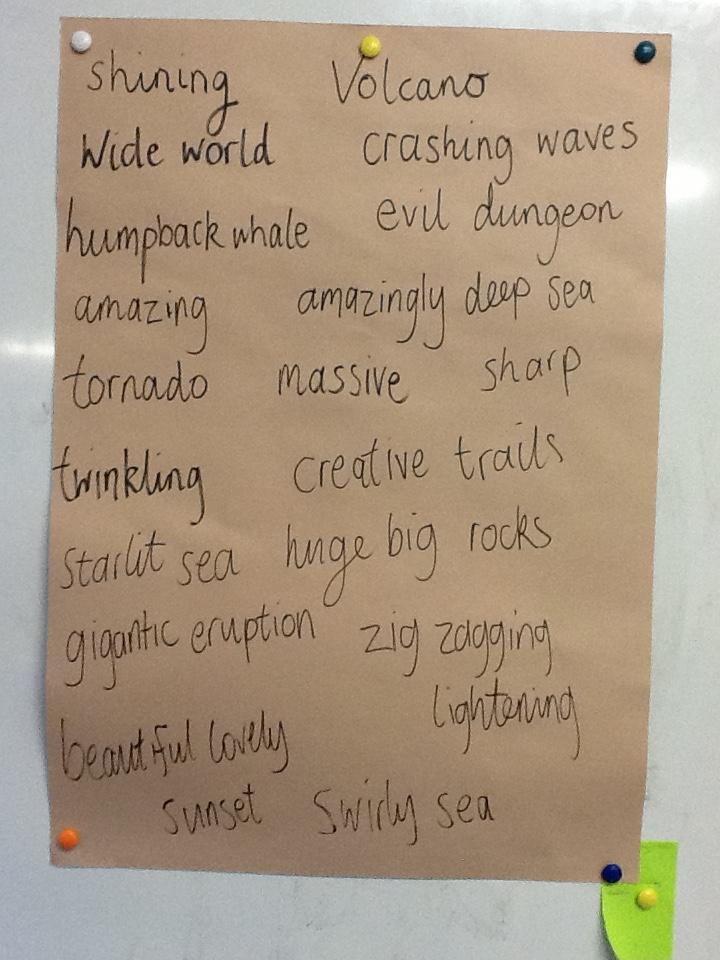 shining Volcano
Wide world crashing waves
humpback whale evil dungeon
amazing amazingly deep sea
tornado massive sharp
twinkling creative trails
starlit sea huge big rocks
gigantic eruption zig zagging
lightening
beautiful lovely
sunset swirly sea